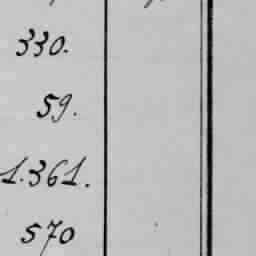 330.
59.
1.361.
570